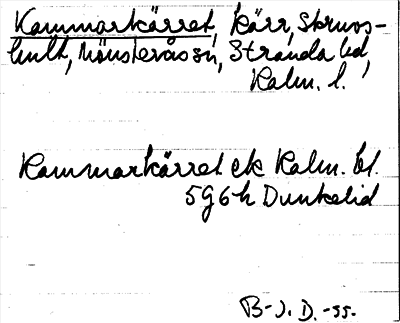 Kammarkärret, kärr, Skruvs-
hult, Mönsterås sn, Stranda hd,
Kalm. l.
Kammarkärret ek Kalm. bl.
5G6h Dunkelid
B-J. D. -55.